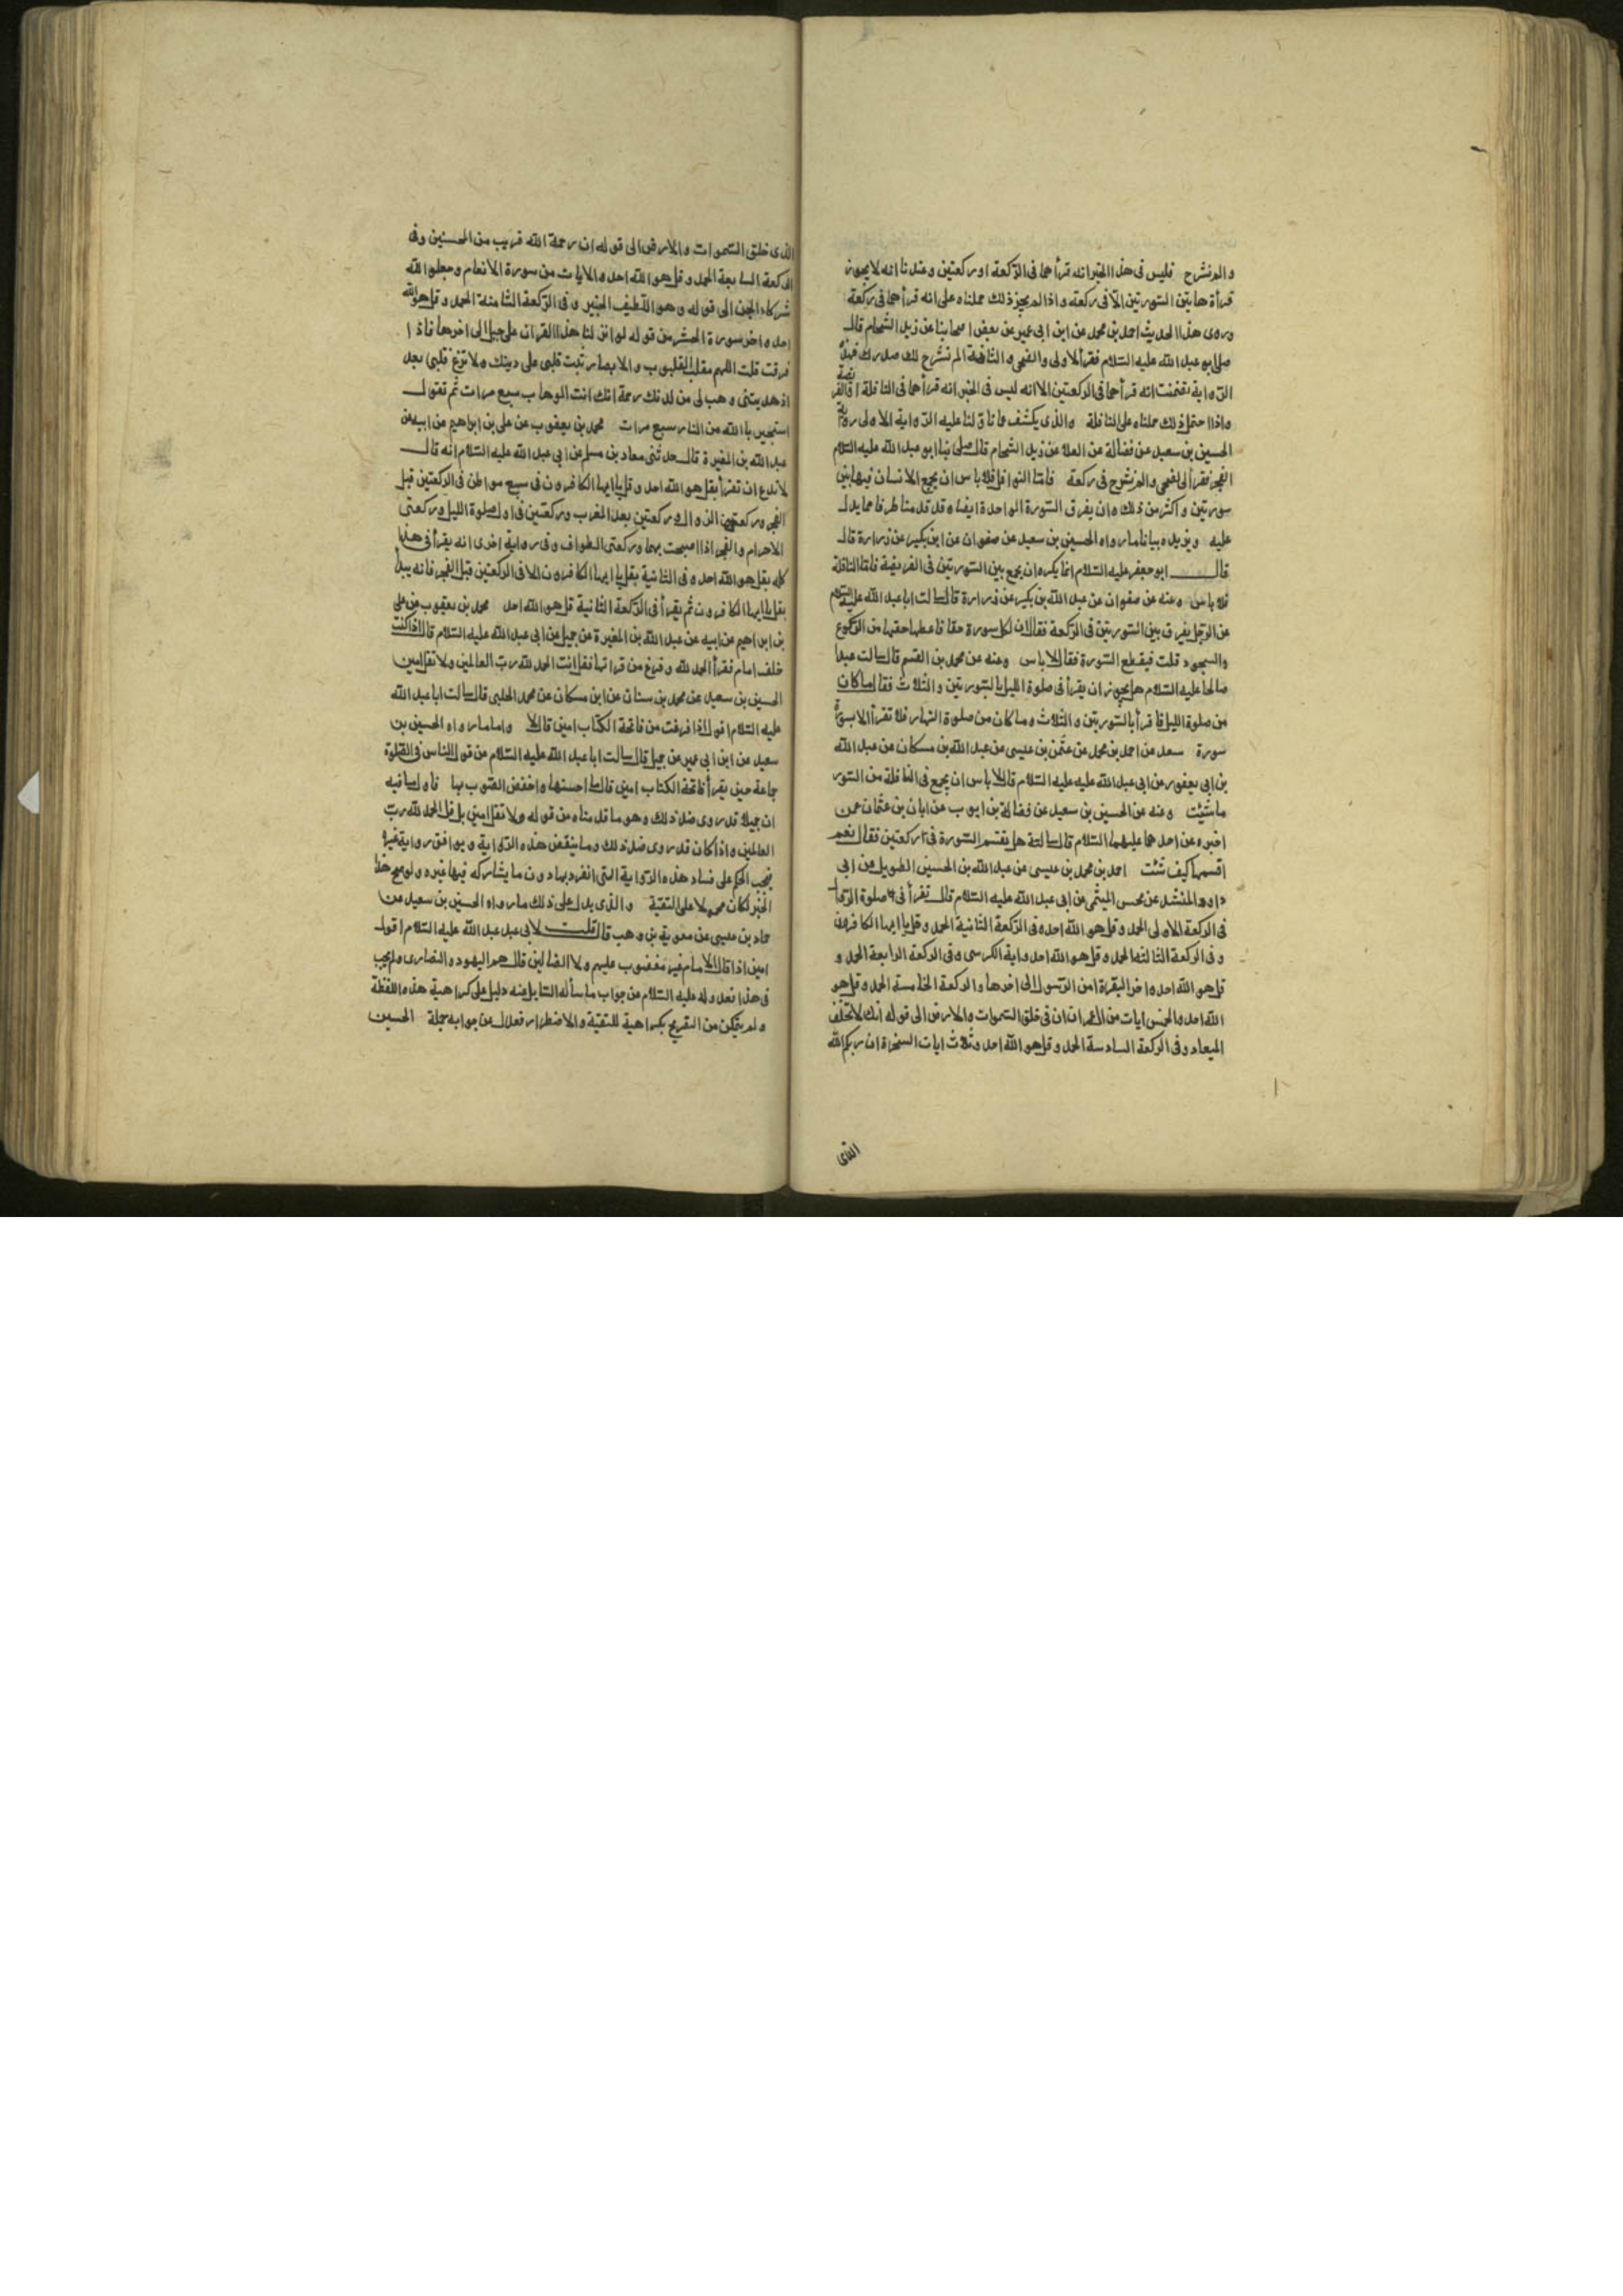 والم نشرح فليس فى هذا الخبر انه قرأهما فى الركعة او ركعتين وعندنا انه لا يجوز
قرأة هاتين السورتين الا فى ركعة واذا لم يجز ذلك حملناه على انه قرأهما فى ركعة
وروى هذا الحديث احمد بن محمد عن ابن ابى عمير عن بعض اصحابنا عن زيد الشحام قال
صلى ابو عبد الله عليه السلام فقرأ الاولى والضحى والثانية الم نشرح لك صدرك فهذه
الرواية تضمنت انه قرأهما فى الركعتين الا انه ليس فى الخبر انه قرأهما فى النافلة او الفريضة
واذا احتمل ذلك حملناه على النافلة والذى يكشف عما تأولنا عليه الرواية الاولى رواية
الحسين بن سعيد عن فضالة عن العلا عن زيد الشحام قال صلى بنا ابو عبد الله عليه السلام
الفجر فقرأ الضحى والم نشرح فى ركعة فامّا النوافل فلا باس ان يجمع الانسان فيها بين
سورتين واكثر من ذلك وان يفرق السورة الواحدة ايضا وقد قدمنا طرفا مما يدل
عليه ويزيده بيانا ما رواه الحسين بن سعيد عن صفوان عن ابن بكير عن زرارة قال
قال ابو جعفر عليه السلام انما يكره ان يجمع بين السورتين فى الفريضة فامّا النافلة
فلا باس وعنه عن صفوان عن عبد الله بن بكير عن زرارة قال سالت ابا عبد الله عليه السلام
عن الرجل يفرق بين السورتين فى الركعة فقال ان لكل سورة حقا فاعطها حقها من الركوع
والسجود قلت فيقطع السورة فقال لا باس وعنه عن محمد بن القسم قال سالت عبدا
صالحا عليه السلام هل يجوز ان يقرأ فى صلوة الليل بالسورتين والثلاث فقال ما كان
من صلوة الليل فاقرأ بالسورتين والثلاث وما كان من صلوة النهار فلا تقرأ الا بسورة
سورة سعد عن احمد بن محمد عن عثمن بن عيسى عن عبد الله بن مسكان عن عبد الله
بن ابى يعفور عن ابى عبد الله عليه عليه السلام قال لا باس ان يجمع فى النافلة من السور
ما شئت وعنه عن الحسين بن سعيد عن فضالة بن ايوب عن ابان بن عثمان عمن
اخبره عن احدهما عليهما السلام قال سالته هل يقتسم السورة فى ركعتين فقال نعم
اقسمها كيف شئت احمد بن محمد بن عيسى عن عبد الله بن الحسين الطويل عن ابى
داود المنشد عن محسن الميثمى عن ابى عبد الله عليه السلام قال تقرأ فى صلوة الزوال
فى الركعة الاولى الحمد وقل هو الله احد وفى الركعة الثانية الحمد وقل يا ايها الكافرون
وفى الركعة الثالثة الحمد وقل هو الله احد واية الكرسى وفى الركعة الرابعة الحمد و
قل هو الله احد واخر البقرة امن الرسول الى اخرها والركعة الخامسة الحمد وقل هو
الله احد والخمس ايات من ال عمران ان فى خلق السموات والارض الى قوله انك لا تخلف
الميعاد وفى الركعة السادسة الحمد وقل هو الله احد وثلاث ايات السخرة ان ربكم الله
الذى
الذى خلق السموات والارض الى قوله ان رحمة الله قريب من المحسنين وفى
الركعة السابعة الحمد وقل هو الله احد والايات من سورة الانعام وجعلوا لله
شركاء الجن الى قوله وهو اللطيف الخبير وفى الركعة الثامنة الحمد وقل هو الله
احد واخر سورة الحشر من قوله لو انزلنا هذا القران على جبل الى اخرها فاذا
فرغت قلت اللهم مقلب القلوب والابصار ثبت قلبى على دينك ولا تزغ قلبى بعد
اذ هديتنى وهب لى من لدنك رحمة انك انت الوهاب سبع مرات ثم تقول
استجير بالله من النار سبع مرات محمد بن يعقوب عن على بن ابراهيم عن ابيه عن
عبد الله بن المغيرة قال حدثنى معاد بن مسلم عن ابى عبد الله عليه السلام انه قال
لا تدع ان تقرأ بقل هو الله احد وقل يا ايها الكافرون فى سبع مواطن فى الركعتين قبل
الفجر وركعتى الزوال وركعتين بعد المغرب وركعتين فى اول صلوة الليل وركعتى
الاحرام والفجر اذا اصبحت بها وركعتى الطواف وفى رواية اخرى انه يقرأ فى هذا
كله بقل هو الله احد وفى الثانية بقل يا ايها الكافرون الا فى الركعتين قبل الفجر فانه يبدأ
بقل يا ايها الكافرون ثم يقرأ فى الركعة الثانية قل هو الله احد محمد بن يعقوب عن على
بن ابراهيم عن ابيه عن عبد الله بن المغيرة عن جميل عن ابى عبد الله عليه السلام قال اذا كنت
خلف امام فقرأ الحمد لله وفرغ من قرأتها فقل انت الحمد لله رب العالمين ولا تقل امين
الحسين بن سعيد عن محمد بن سنان عن ابن مسكان عن محمد الحلبى قال سالت ابا عبد الله
عليه السلام اقول اذا فرغت من فاتحة الكتاب امين قال لا واما ما رواه الحسين بن
سعيد عن ابن ابى عمير عن جميل قال سالت ابا عبد الله عليه السلام عن قول الناس فى الصلوة
جماعة حين يقرأ فاتحة الكتاب امين قال ما احسنها واخفض الصوت بها فاول ما فيه
ان جميلا قد روى ضد ذلك وهو ما قدمناه من قوله ولا تقل امين بل قل الحمد لله رب
العالمين واذا كان قد روى ضد ذلك وما ينقض هذه الرواية ويوافق رواية غيره
فيجب الحكم على فساد هذه الرواية التى انفرد بها دون ما يشاركه فيها غيره ولو صح هذا
الخبر لكان محمولا على التقية والذى يدل على ذلك ما رواه الحسين بن سعيد عن
حماد بن عيسى عن معوية بن وهب قال قلت لابى عبد عبد الله عليه السلام اقول
امين اذا قال الامام غير مغضوب عليهم ولا الضالين قال هم اليهود والنصارى ولم يجب
فى هذا فعدوله عليه السلام عن جواب ما سأله السايل عنه دليل على كراهية هذه اللفظة
ولم يتمكن من التصريح بكراهية للتقية والاضطرار فعدل عن جوابه جملة الحسين